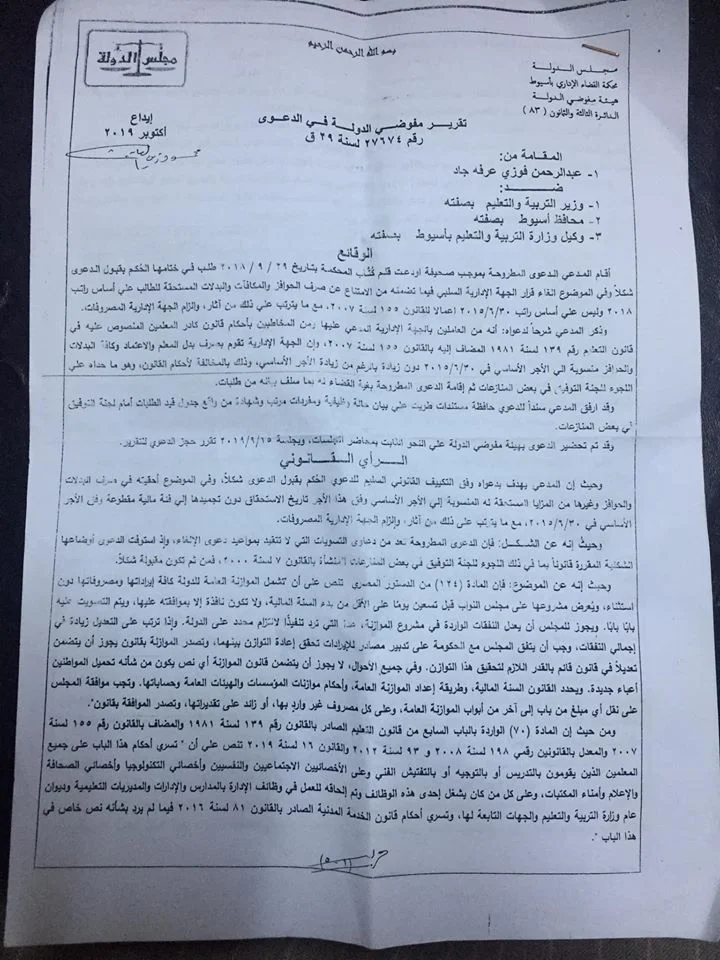 بسم الله الرحمن الرحيم
مجلس الدولة
مجلس الدولة
محكمة القضاء الإداري بأسيوط
هيئة مفوضي الدولة
الدائرة الثالثة والثمانون ( ٨٣ )
إيداع
أكتوبر ٢٠١٩
تقرير مفوضي الدولة في الدعوى
رقم ٢٧٦٧٤ لسنة ٢٩ ق
المقامة من:
١- عبدالرحمن فوزي عرفه جاد
ضـــــــد:
١- وزير التربية والتعليم بصفته
٢- محافظ أسيوط بصفته
٣- وكيل وزارة التربية والتعليم بأسيوط بصفته
الوقائع
أقام المدعي الدعوى المطروحة بموجب صحيفة اودعت قلم كتاب المحكمة بتاريخ ٢٩ / ٩ / ٢٠١٨ طلب في ختامها الحكم بقبول الدعوى
شكلاً وفي الموضوع الغاء قرار الجهة الإدارية السلبي فيما تضمنه من الامتناع عن صرف الحوافز والمكافآت والبدلات المستحقة للطالب علي أساس راتب
٢٠١٨ وليس علي أساس راتب ٢٠١٥/٦/٣٠ اعمالا للقانون ١٥٥ لسنة ٢٠٠٧، مع ما يترتب علي ذلك من آثار، وإلزام الجهة الإدارية المصروفات.
وذكر المدعي شرحاً لدعواه: أنه من العاملين بالجهة الإدارية المدعي عليها ومن المخاطبين بأحكام قانون كادر المعلمين المنصوص عليه في
قانون التعليم رقم ١٣٩ لسنة ١٩٨١ المضاف إليه بالقانون ١٥٥ لسنة ٢٠٠٧، وإن الجهة الإدارية تقوم بصرف بدل المعلم والاعتماد وكافة البدلات
والحوافز منسوبة الي الأجر الأساسي في ٢٠١٥/٦/٣٠ دون زيادة بالرغم من زيادة الأجر الأساسي، وذلك بالمخالفة لأحكام القانون، وهو ما حداه علي
اللجوء للجنة التوفيق في بعض المنازعات ثم إقامة الدعوى المطروحة بغية القضاء له بما سلف بيانه من طلبات.
وقد ارفق المدعي سنداً للدعوي حافظة مستندات طويت علي بيان حالة وظيفية ومفردات مرتب وشهادة من واقع جدول قيد الطلبات أمام لجنة التوفيق
في بعض المنازعات.
وقد تم تحضير الدعوى بهيئة مفوضي الدولة علي النحو الثابت بمحاضر الجلسات، وبجلسة ٢٠١٩/٩/١٥ تقرر حجز الدعوي للتقرير.
الـــرأي القــانوني
وحيث إن المدعي يهدف بدعواه وفق التكييف القانوني السليم للدعوي الحكم بقبول الدعوى شكلاً، وفي الموضوع أحقيته في صرف البدلات
والحوافز وغيرها من المزايا المستحقة له المنسوبة إلي الأجر الأساسي وفق هذا الأجر تاريخ الاستحقاق دون تجميدها إلي فئة مالية مقطوعة وفق الأجر
الأساسي في ٢٠١٥/٦/٣٠، مع ما يترتب علي ذلك من آثار، وإلزام الجهة الإدارية المصروفات.
وحيث إنه عن الشـكـل: فإن الدعوى المطروحة تعد من دعاوى التسويات التي لا تتقيد بمواعيد دعوى الإلغاء، وإذ استوفت الدعوى أوضاعها
الشكلية المقررة قانوناً بما في ذلك اللجوء للجنة التوفيق في بعض المنازعات المنشأة بالقانون ٧ لسنة ٢٠٠٠، فمن ثم تكون مقبولة شكلاً.
وحيث إنه عن الموضوع: فإن المادة (١٢٤) من الدستور المصري تنص على أن "تشمل الموازنة العامة للدولة كافة إيراداتها ومصروفاتها دون
استثناء، ويُعرض مشروعها على مجلس النواب قبل تسعين يومًا على الأقل من بدء السنة المالية، ولا تكون نافذة إلا بموافقته عليها، ويتم التصويت عليه
بابًا بابًا. ويجوز للمجلس أن يعدل النفقات الواردة في مشروع الموازنة، عدا التي ترد تنفيذًا لالتزام محدد على الدولة. وإذا ترتب على التعديل زيادة في
إجمالي النفقات، وجب أن يتفق المجلس مع الحكومة على تدبير مصادر للإيرادات تحقق إعادة التوازن بينهما، وتصدر الموازنة بقانون يجوز أن يتضمن
تعديلاً في قانون قائم بالقدر اللازم لتحقيق هذا التوازن. وفي جميع الأحوال، لا يجوز أن يتضمن قانون الموازنة أي نص يكون من شأنه تحميل المواطنين
أعباء جديدة. ويحدد القانون السنة المالية، وطريقة إعداد الموازنة العامة، وأحكام موازنات المؤسسات والهيئات العامة وحساباتها. وتجب موافقة المجلس
على نقل أي مبلغ من باب إلى آخر من أبواب الموازنة العامة، وعلى كل مصروف غير وارد بها، أو زائد على تقديراتها، وتصدر الموافقة بقانون".
ومن حيث إن المادة (٧٠) الواردة بالباب السابع من قانون التعليم الصادر بالقانون رقم ١٣٩ لسنة ١٩٨١ والمضاف بالقانون رقم ١٥٥ لسنة
٢٠٠٧ والمعدل بالقانونين رقمي ١٩٨ لسنة ٢٠٠٨ و ٩٣ لسنة ٢٠١٢ والقانون ١٦ لسنة ٢٠١٩ تنص علي أن " تسري أحكام هذا الباب على جميع
المعلمين الذين يقومون بالتدريس أو بالتوجيه أو بالتفتيش الفني وعلى الأخصائيين الاجتماعيين والنفسيين وأخصائي التكنولوجيا وأخصائي الصحافة
والإعلام وأمناء المكتبات، وعلى كل من كان يشغل إحدى هذه الوظائف وتم إلحاقه للعمل في وظائف الإدارة بالمدارس والإدارات والمديريات التعليمية وديوان
عام وزارة التربية والتعليم والجهات التابعة لها، وتسري أحكام قانون الخدمة المدنية الصادر بالقانون ٨١ لسنة ٢٠١٦ فيما لم يرد بشأنه نص خاص في
هذا الباب ".